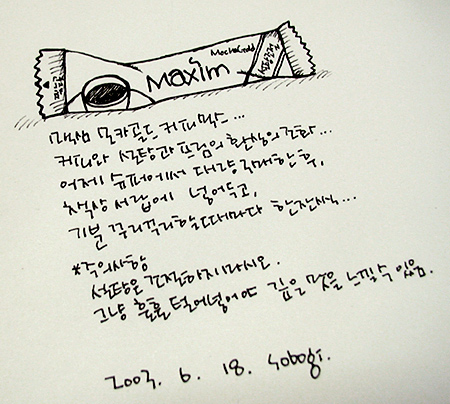 MochaGold
Maxim
맥심 모카골드 커피믹스...
커피와 설탕과 프림의 환상의 조화...
어제 슈퍼에서 대량구매한 후,
책상 서랍에 넣어두고,
기분 꾸리꾸리할때마다 한잔씩...
*주의사항
설탕은 조절하지마시오.
그냥 훌훌 털어넣어야 깊은 맛을 느낄 수 있음.
2003. 6. 18. sobogi.